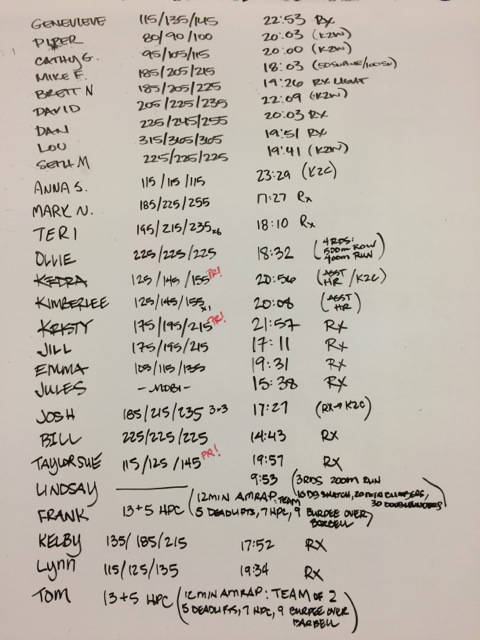 GENEVIEVE 115/135/145 22:53 Rx
PIPER 80/90/100 20:03 (K2W)
CATHY G. 95/105/115 20:00 (K2W)
MIKE F. 185/205/215 18:03
BRETT N 185/205/225 19:26 RX LIGHT
DAVID 205/225/235 22:09
DAN 225/245/255 20:03 Rx
LOU 315/365/365 19:51 Rx
SETH M 225/225/225 19:41
ANNA S. 115/115/115 23:29 (K2C)
MARK N. 185/225/255 17:27 Rx
TERI 195/215/235 x6 18:10 Rx
OLLIE 225/225/225 18:32 (4 RDS: 500m ROW 400m RUN)
KEDRA 125/145/155 PR! 20:56 (ASST HR / K2C)
KIMBERLEE 125/145/155 x1 20:08 (ASST HR)
KRISTY 175/195/215 PR! 21:57 Rx
JILL 175/195/215 17:11 Rx
EMMA 105/115/135 19:31 Rx
JULES - MOBI - 15:38 Rx
JOSH 185/215/235 3+3 17:27 (RX → K2C)
BILL 225/225/225 14:43 RX
TAYLOR SUE 115/125/145 PR! 19:57 Rx
LINDSAY 9:53 (3RDS 200M RUN
FRANK 13+5 HPC (12 MIN AMRAP: TEAM
5 DEADLIFTS, 7 HPC, 9 BURPEE OVER
BARBELL)
KELBY 135/185/215 17:52 RX
Lynn 115/125/135 19:34 Rx
TOM 13+5 HPC (12 MIN AMRAP: TEAM OF 2
5 DEADLIFTS, 7 HPC, 9 BURPEE OVER
BARBELL)